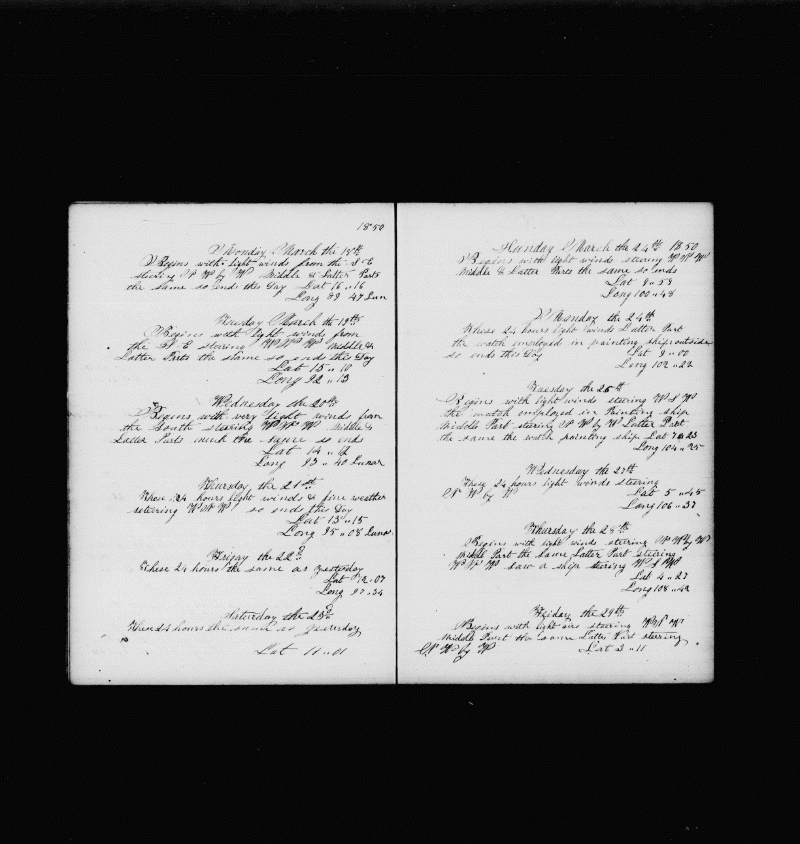 1850
Monday March the 18th
Begins with light winds from the S E
stering N W by W Middle & Latter Parts
the same so ends this Day Lat 16 " 16
Long 89 47 Lun
Tuesday March the 19th
Begins with light winds from
the S E staring W N W Middle &
Latter Parts the same so ends this Day
Lat 15 " 10
Long 92 " 13
Wednesday the 20th
Begins with very light winds from
the South stearing W N W Middle &
Latter Parts much the same so ends
Lat 14 " 12
Long 93 " 40 Lunar
Thursday the 21st
These 24 hours light winds & fine weather
stearing W N W so ends this Day
Lat 13 " 15
Long 95 " 08 Lunar
Friday the 22d
These 24 hours the same as yesterday
Lat 12 " 07
Long 97 " 34
Saturday the 23d
These 24 hours the same as yesterday
Lat 11 " 01
Sunday March the 24th 1850
Begins with light winds steering W N W
Middle & Latter Parts the same so ends
Lat 9 " 58
Long 100 " 48
Monday the 24th
These 24 hours light winds Latter Part
the watch employed in painting ship outside
so ends this Day Lat 9 " 00
Long 102 " 22
Tuesday the 26th
Begins with light winds steering W N W
the watch employed in Painting ship
Middle Part steering N W by W Latter Part
the same the watch painting ship Lat 7 " 23
Long 104 " 25
Wednesday the 27th
These 24 hours light winds steering
N W by W Lat 5 " 45
Long 106 " 37
Thursday the 28th
Begins with light winds steering N W by W
Middle Part the same Latter Part steering
W N W saw a ship steering
Lat 4 " 27
Long 108 " 42
Friday the 29th
Begins with light airs steering W N W
Middle Part the same Latter Part sterring
N W by W Lat 3 " 11